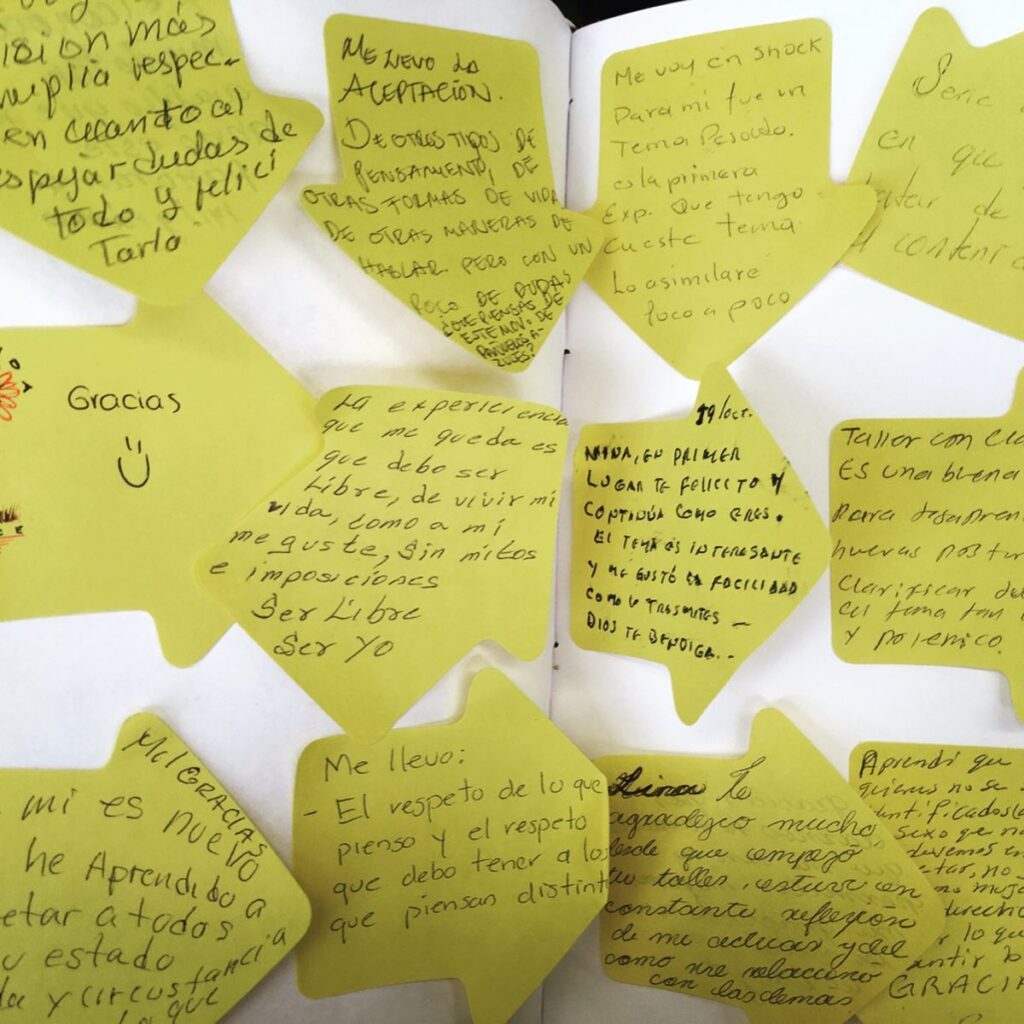 isión más
mplia respec-
en cuanto al
spejar dudas de
todo y felici
Tarlo
ME LLEVO LA
ACEPTACIÓN.
DE OTROS TIPOS DE
PENSAMIENTO, DE
OTRAS FORMAS DE VIDA
DE OTRAS MANERAS DE
HABLAR. PERO CON UN
POCO DE DUDAS
¿QUE PIENSAS DE
ESTE MOV. DE
PAÑUELOS A-
ZULES?
Me voy en shock
Para mi fue un
Tema Pesado.
es la primera
Exp. Que tengo
cueste tema
Lo asimilaré
poco a poco
Seria
en que
tar de
l conteni
Gracias
La expericiencia
que me queda es
que debo ser
Libre, de vivir mi
vida, como a mí
me guste, Sin mitos
e imposiciones
Ser Libre
Ser Yo
19/oct.
NINA, EN PRIMER
LUGAR TE FELICITO Y
CONTINÚA COMO ERES.
EL TEMA ES INTERESANTE
Y ME GUSTÓ LA FACILIDAD
COMO LO TRASMITES -
DIOS TE BENDIGA.-
Taller con cla
Es una buena
Para desapren
nuevas postur
Clarificar
el tema tan
y polemico.
Mil GRACIAS
mi es nuevo
he Aprendido a
etar a todos
u estado
da y circustancia
lo que
Me llevo:
- El respeto de lo que
pienso y el respeto
que debo tener a los
que piensan distint
Te
agradezco mucho
desde que empezó
tu taller, estuve en
constante reflexión
de me actuar y del
como me relaciono
con las demas
Aprendí que
quienes no se
dentificados
sexo que na
devemos
tar, no s
no muj
derecho
lo que
ntir
GRACIA